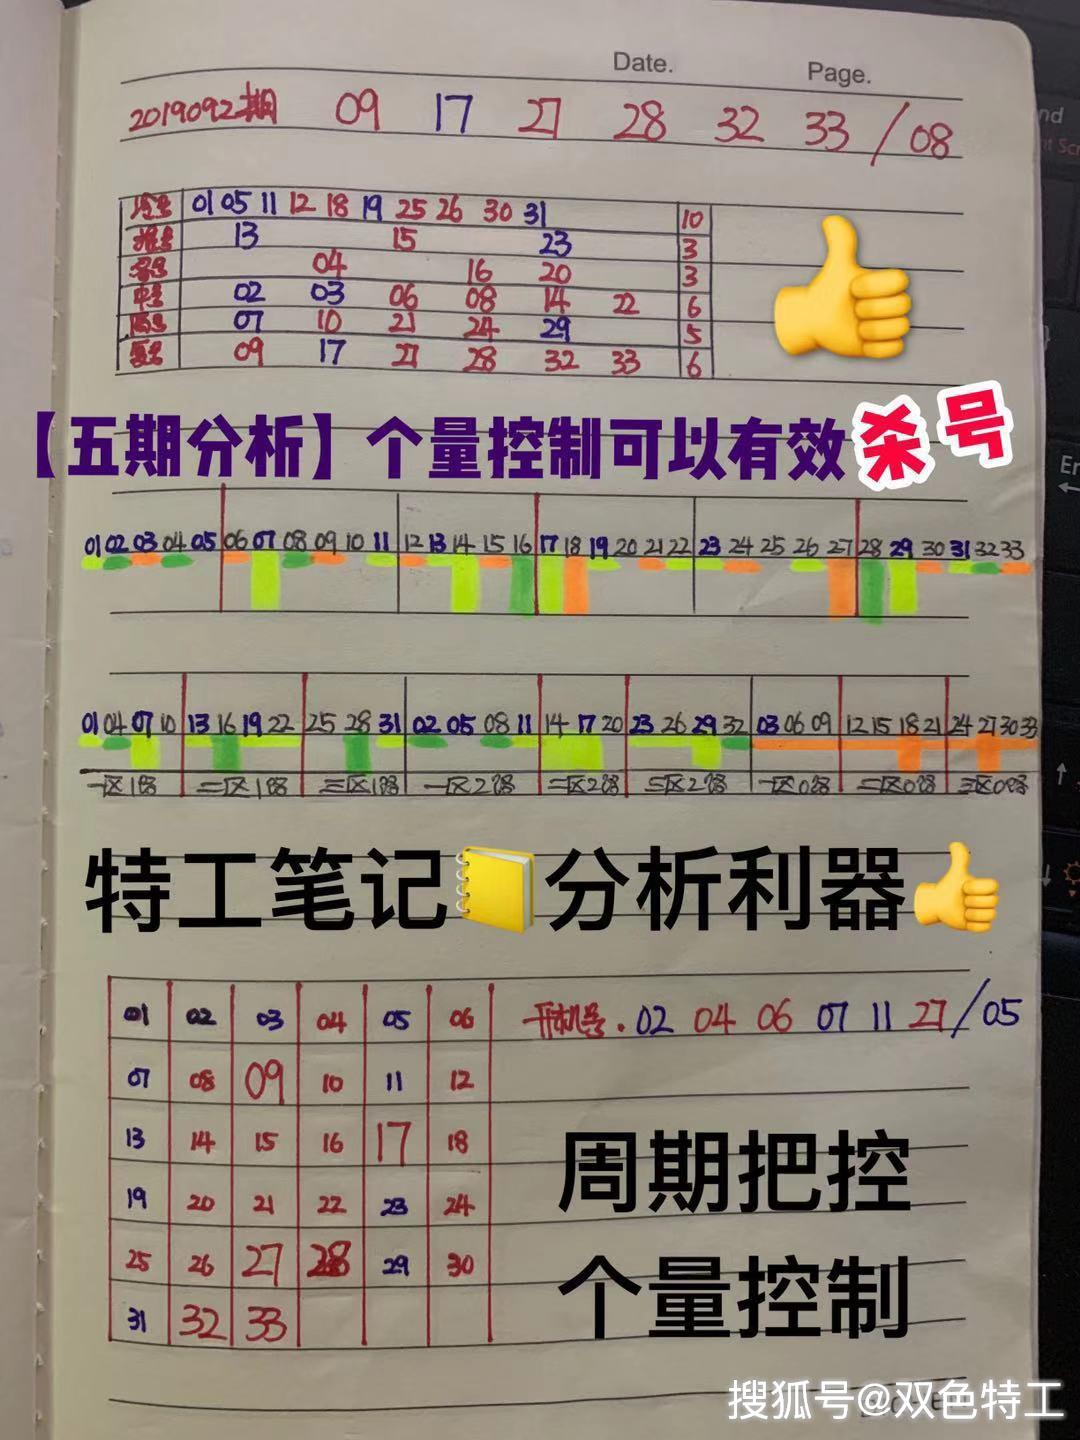 Date.
Page.
2019092期 09 17 27 28 32 33 / 08
冷号 01 05 11 12 18 19 25 26 30 31 10
13 15 23 3
04 16 20 3
中号 02 03 06 08 14 22 6
07 10 21 24 29 5
09 17 27 28 32 33 6
【五期分析】个量控制可以有效杀号
01 02 03 04 05 06 07 08 09 10 11 12 13 14 15 16 17 18 19 20 21 22 23 24 25 26 27 28 29 30 31 32 33
01 04 07 10 13 16 19 22 25 28 31 02 05 08 11 14 17 20 23 26 29 32 03 06 09 12 15 18 21 24 27 30 33
一区1路 二区1路 三区1路 一区2路 二区2路 三区2路 一区0路 二区0路 三区0路
特工笔记 分析利器
01 02 03 04 05 06
开机号. 02 04 06 07 11 27 / 05
07 08 09 10 11 12
13 14 15 16 17 18
周期把控
19 20 21 22 23 24
25 26 27 28 29 30
个量控制
31 32 33
搜狐号@双色特工